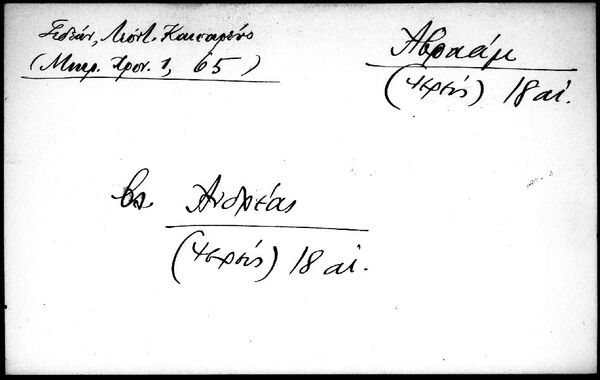 Γεδεών, Λεόντ. Καισαρεύς
(Μικρ. Χρον. 1, 65)
Αβραάμ
(Ιερεύς) 18 αι.
βλ Ανδρέας
(Ιερεύς) 18 αι.